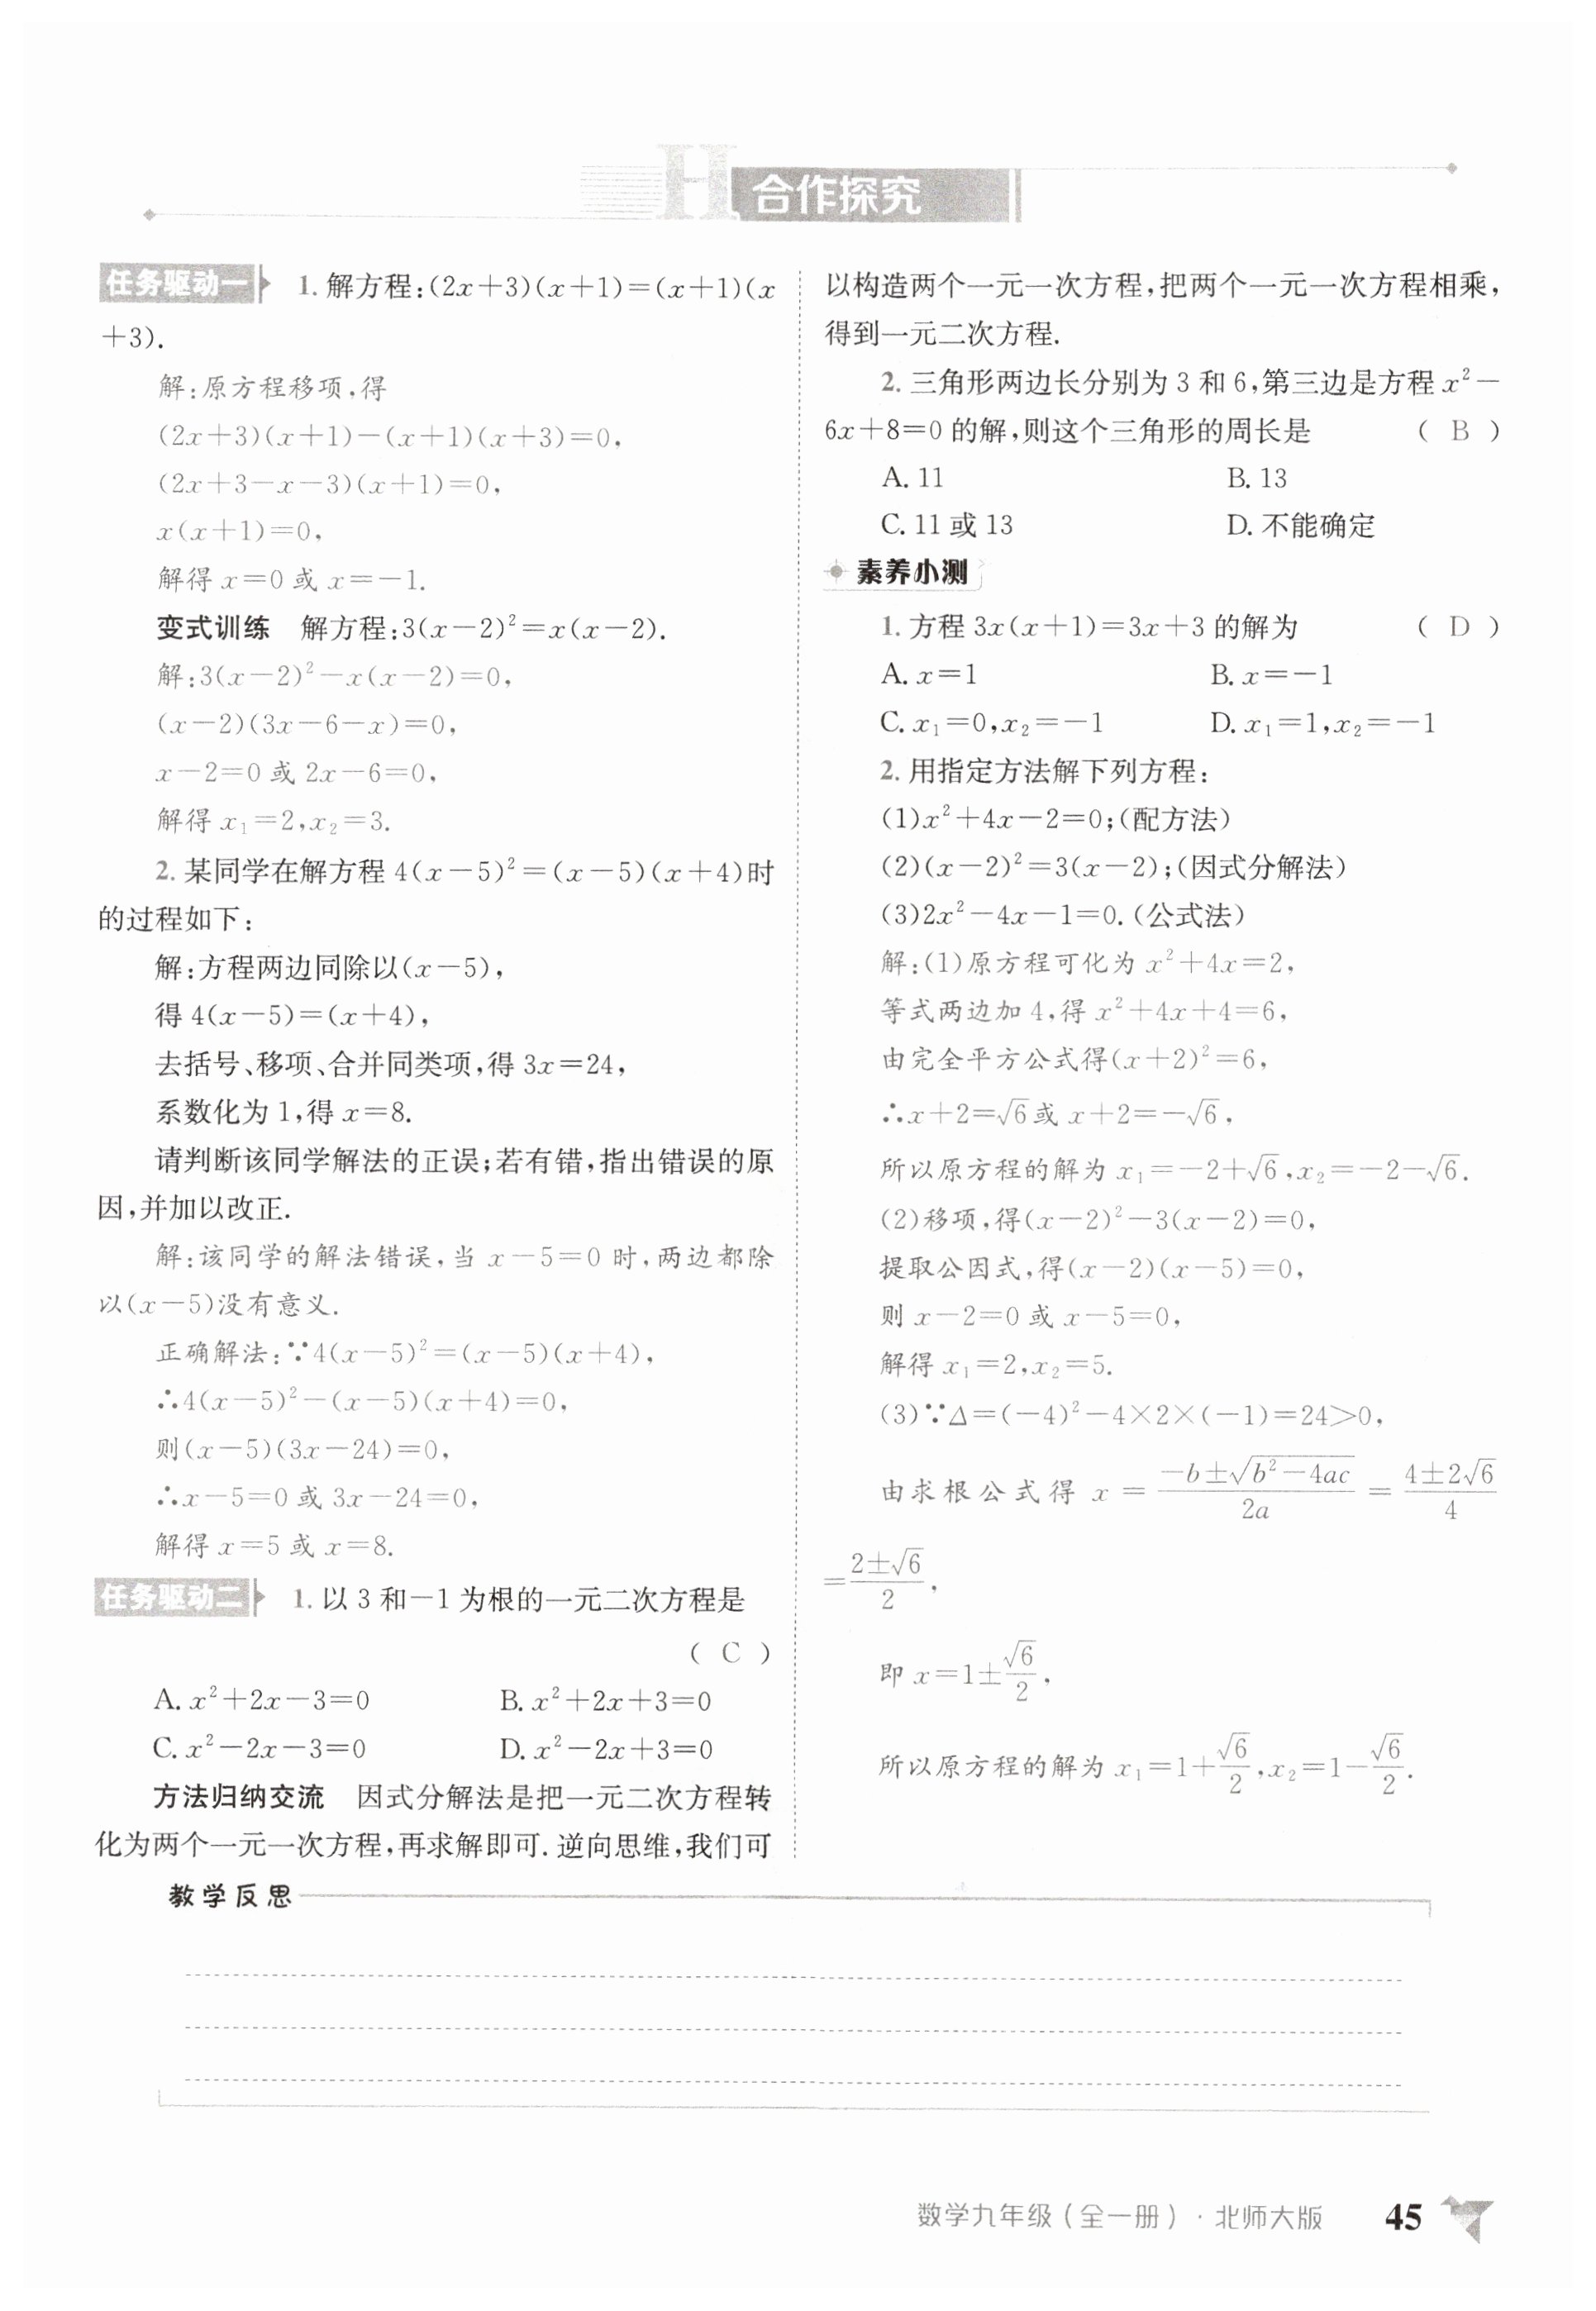 H 合作探究
任务驱动一 1. 解方程:(2x+3)(x+1)=(x+1)(x
+3).
解:原方程移项,得
(2x+3)(x+1)-(x+1)(x+3)=0,
(2x+3-x-3)(x+1)=0,
x(x+1)=0,
解得 x=0 或 x=-1.
变式训练 解方程:3(x-2)²=x(x-2).
解:3(x-2)²-x(x-2)=0,
(x-2)(3x-6-x)=0,
x-2=0 或 2x-6=0,
解得 x₁=2,x₂=3.
2. 某同学在解方程 4(x-5)²=(x-5)(x+4)时
的过程如下:
解:方程两边同除以(x-5),
得 4(x-5)=(x+4),
去括号、移项、合并同类项,得 3x=24,
系数化为 1,得 x=8.
请判断该同学解法的正误;若有错,指出错误的原
因,并加以改正.
解:该同学的解法错误,当 x-5=0 时,两边都除
以(x-5)没有意义.
正确解法:∵4(x-5)²=(x-5)(x+4),
∴4(x-5)²-(x-5)(x+4)=0,
则(x-5)(3x-24)=0,
∴x-5=0 或 3x-24=0,
解得 x=5 或 x=8.
任务驱动二 1. 以 3 和-1 为根的一元二次方程是
( C )
A. x²+2x-3=0 B. x²+2x+3=0
C. x²-2x-3=0 D. x²-2x+3=0
方法归纳交流 因式分解法是把一元二次方程转
化为两个一元一次方程,再求解即可. 逆向思维,我们可
以构造两个一元一次方程,把两个一元一次方程相乘,
得到一元二次方程.
2. 三角形两边长分别为 3 和 6,第三边是方程 x²-
6x+8=0 的解,则这个三角形的周长是 ( B )
A. 11 B. 13
C. 11 或 13 D. 不能确定
素养小测
1. 方程 3x(x+1)=3x+3 的解为 ( D )
A. x=1 B. x=-1
C. x₁=0,x₂=-1 D. x₁=1,x₂=-1
2. 用指定方法解下列方程:
(1)x²+4x-2=0;(配方法)
(2)(x-2)²=3(x-2);(因式分解法)
(3)2x²-4x-1=0.(公式法)
解:(1)原方程可化为 x²+4x=2,
等式两边加 4,得 x²+4x+4=6,
由完全平方公式得(x+2)²=6,
∴x+2=√6或 x+2=-√6,
所以原方程的解为 x₁=-2+√6,x₂=-2-√6.
(2)移项,得(x-2)²-3(x-2)=0,
提取公因式,得(x-2)(x-5)=0,
则 x-2=0 或 x-5=0,
解得 x₁=2,x₂=5.
(3)∵Δ=(-4)²-4×2×(-1)=24>0,
由求根公式得 x = (-b±√(b²-4ac))/(2a) = (4±2√6)/4
=(2±√6)/2,
即 x=1±√6/2,
所以原方程的解为 x₁=1+√6/2,x₂=1-√6/2.
教学反思
数学九年级(全一册)·北师大版 45